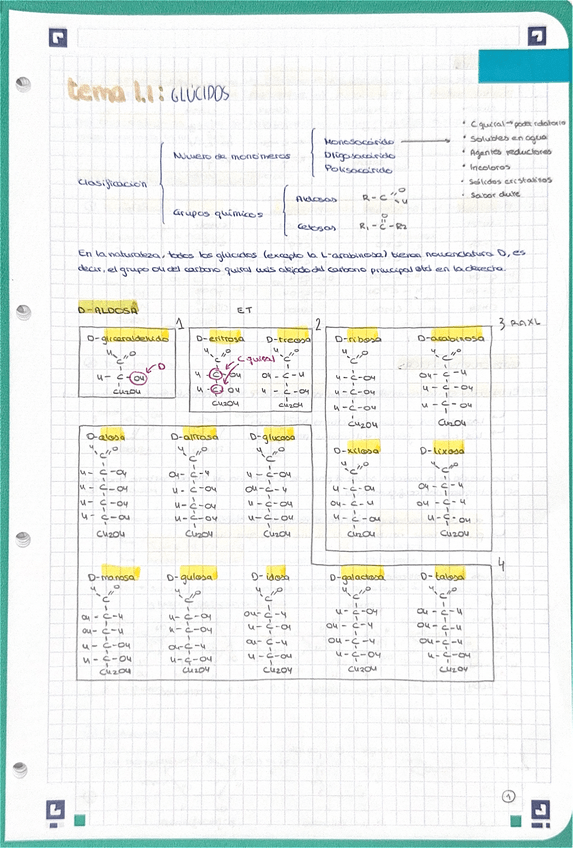 tema 1.1: GLÚCIDOS
Clasificación
Número de monómeros
Monosacárido
Oligosacárido
Polisacárido
Grupos químicos
Aldosas
R-C=O
H
Cetosas
O
R1-C-R2
• C quiral → poder rotatorio
• Solubles en agua
• Agentes reductores
• Incoloros
• Sólidos cristalinos
• Sabor dulce
En la naturaleza, todos los glúcidos (excepto la L-arabinosa) tienen nomenclatura D, es
decir, el grupo OH del carbono quiral más alejado del carbono principal está en la derecha.
D-ALDOSA
ET
1
D-gliceraldehído
H O
C
H-C-OH
D
CH2OH
2
D-eritrosa
H O
C
C quiral
H-C-OH
H-C-OH
CH2OH
D-treosa
H O
C
OH-C-H
H-C-OH
CH2OH
3 RAXL
D-ribosa
H O
C
H-C-OH
H-C-OH
H-C-OH
CH2OH
D-arabinosa
H O
C
OH-C-H
H-C-OH
H-C-OH
CH2OH
D-xilosa
H O
C
H-C-OH
OH-C-H
H-C-OH
CH2OH
D-lixosa
H O
C
OH-C-H
OH-C-H
H-C-OH
CH2OH
4
D-alosa
H O
C
H-C-OH
H-C-OH
H-C-OH
H-C-OH
CH2OH
D-altrosa
H O
C
OH-C-H
H-C-OH
H-C-OH
H-C-OH
CH2OH
D-glucosa
H O
C
H-C-OH
OH-C-H
H-C-OH
H-C-OH
CH2OH
D-manosa
H O
C
OH-C-H
OH-C-H
H-C-OH
H-C-OH
CH2OH
D-gulosa
H O
C
H-C-OH
H-C-OH
OH-C-H
H-C-OH
CH2OH
D-idosa
H O
C
OH-C-H
H-C-OH
OH-C-H
H-C-OH
CH2OH
D-galactosa
H O
C
H-C-OH
OH-C-H
OH-C-H
H-C-OH
CH2OH
D-talosa
H O
C
OH-C-H
OH-C-H
OH-C-H
H-C-OH
CH2OH
1